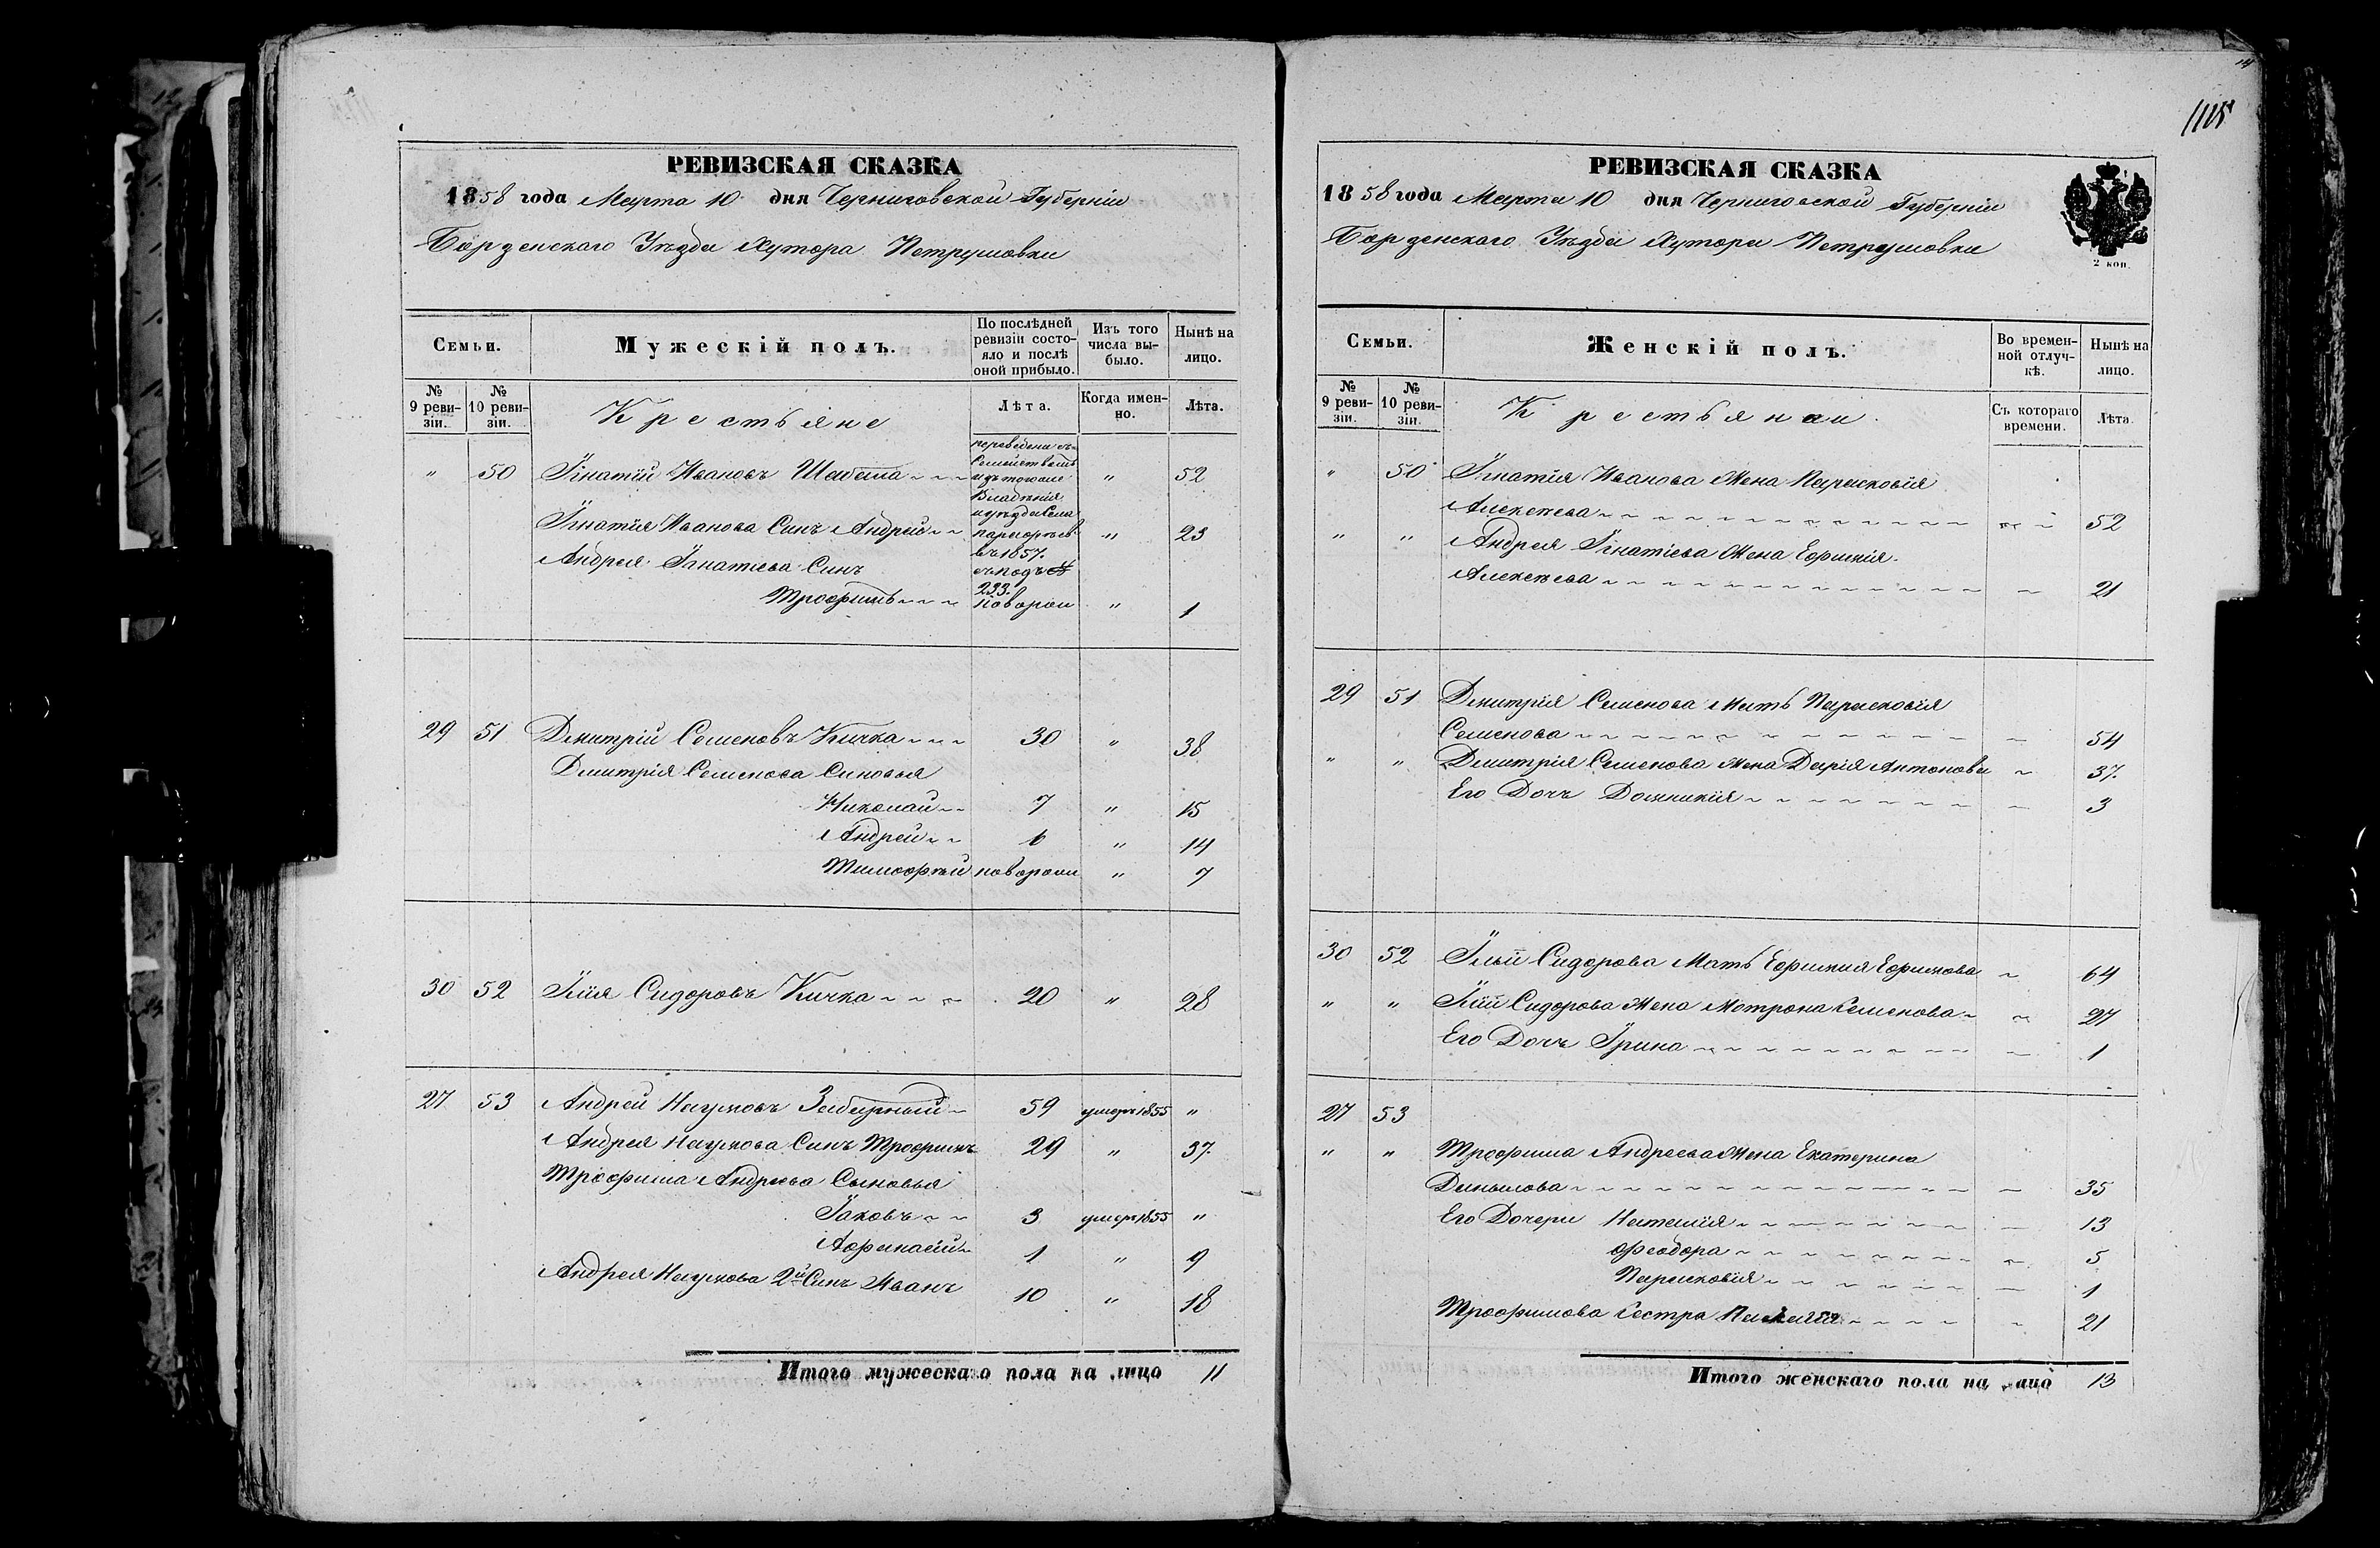 РЕВИЗСКАЯ СКАЗКА
1858 года Марта 10 дня Черниговской Губерніи
Борзенскаго Уѣзда Хутора Петрушовки
Семьи.
Мужескій полъ.
По послѣдней ревизіи состояло и послѣ оной прибыло.
Изъ того числа выбыло.
Нынѣ на лицо.
№ 9 ревизіи.
№ 10 ревизіи.
Крестьяне
Лѣта.
Когда именно.
Лѣта.
переведени съ
Семействомъ
изъ тогоже
Владѣнія
изъ
въ 1857.
съ подъ №
233.
" 50 Ігнатій Ивановъ " 52
Ігнатія Иванова Синъ Андрей " 23
Андрея Ігнатіева Синъ
Трофимъ новорож " 1
29 51 Дмитрій Семеновъ Кичка 30 " 38
Дмитрія Семенова Синовья
Николай 7 " 15
Андрей 6 " 14
Тимофѣй новорож " 7
30 52 Ілія Сидоровъ Кичка 20 " 28
27 53 Андрей Наумовъ Забирный 59 умеръ 1855 "
Андрея Наумова Синъ Трофимъ 29 " 37.
Трофима Андреева Сыновья
Іаковъ 3 умеръ 1855 "
Афанасій 1 " 9
Андрея Наумова 2й Синъ Иванъ 10 " 18
Итого мужескаго пола на лицо 11
14
1115
РЕВИЗСКАЯ СКАЗКА
1858 года Марта 10 дня Черниговской Губерніи
Борзенскаго Уѣзда Хутора Петрушовки
2 коп.
Семьи.
Женскій полъ.
Во временной отлучкѣ.
Нынѣ на лицо.
№ 9 ревизіи.
№ 10 ревизіи.
Крестьянки
Съ котораго времени.
Лѣта.
" 50 Ігнатія Иванова Жена Парасковія
Алексѣева 52
" " Андрея Ігнатіева Жена Ефимія
Алексѣева 21
29 51 Дмитрія Семенова Мать Парасковія
Семенова 54
" " Дмитрія Семенова Жена Дарія Антонова 37.
Его Дочъ Домникія 3
30 52 Іліи Сидорова Мать Ефимия Ефимова 64
" " Іліи Сидорова Жена Мотрона Семенова 27
Его Дочъ Ірина 1
27 53
" " Трофима Андреева Жена Екатерина
Данилова 35
Его Дочери Наталія 13
Феодора 5
Парасковія 1
Трофимова Сестра Пелагія 21
Итого женскаго пола на лицо 13